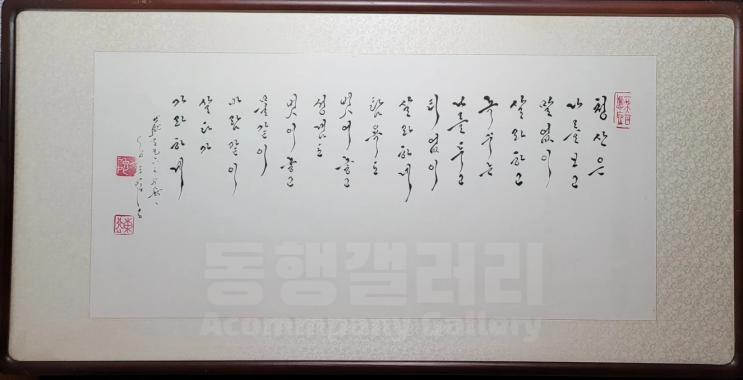 청산은
나를보고
말없이
살라하고
우주는
나를두고
티없이
살라하네
탐욕도
벗어놓고
성냄도
벗어놓고
물같이
바람같이
살다가
가라하네
동행갤러리
Acommpany Gallery